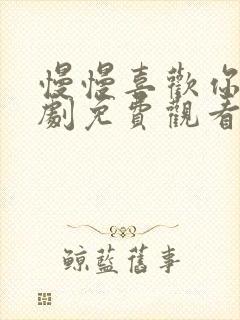 慢慢喜歡你
劇免費觀看
鯨藍舊事